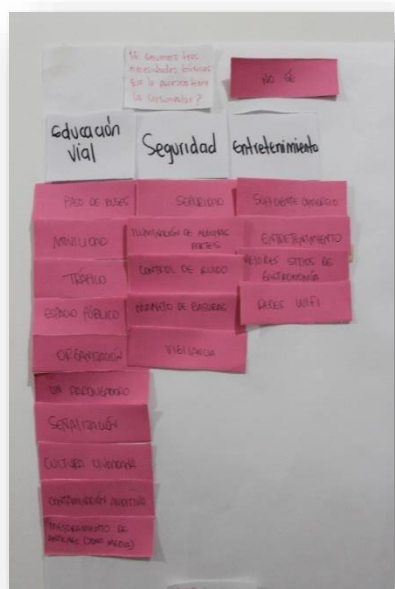 necesidades básicas
No sé
Educación
Vial
Seguridad
Entretenimiento
PASO DE BUSES
MOVILIDAD
TRÁFICO
ESPACIO PÚBLICO
ORGANIZACIÓN
UN PARQUEADERO
SEÑALIZACIÓN
CULTURA CIUDADANA
CONTAMINACIÓN AUDITIVA
MEJORAMIENTO DE
SEGURIDAD
ILUMINACIÓN DE ALGUNAS
PARTES
CONTROL DE RUIDO
MANEJO DE BASURAS
VIGILANCIA
SUFICIENTE COMERCIO
ENTRETENIMIENTO
MEJORES SITIOS DE
GASTRONOMÍA
REDES WIFI